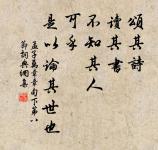 頌其詩
讀其書
不知其人
可乎
是以論其世也
孟子萬章章句下第八
節詞典網集